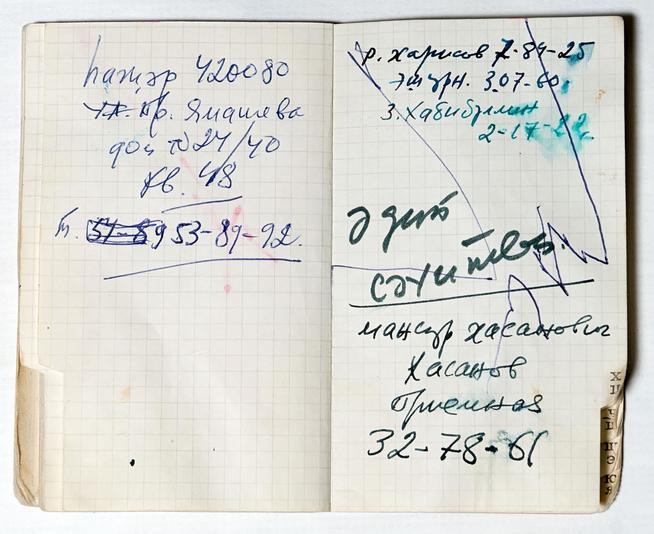 һатәр 420080
ул. пр. Ямашева
дом № 24/40
кв. 48
т. 53-89-92.
р. харисов 2-84-25
эш урн. 3.07-60.
З. Хабибуллин
2-17-22
Әдип
мансур хасанович
Хасанов
Приемная
32-78-61
Х
Ц
Ч
Щ
Э
Ю
Я